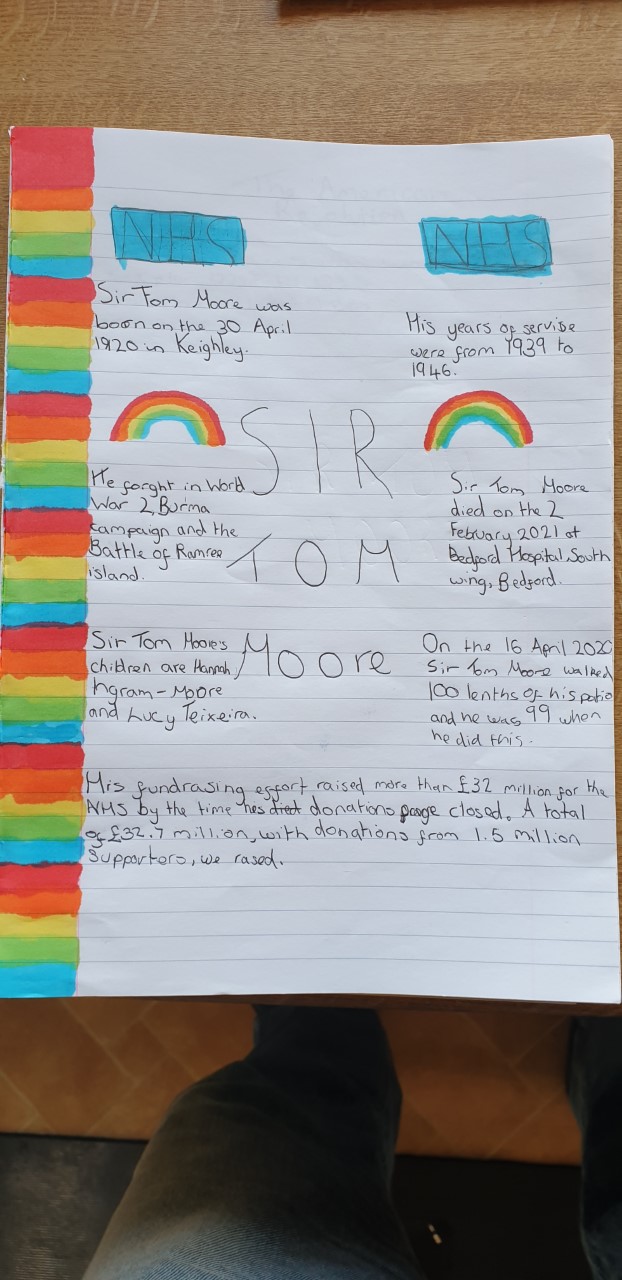 NHS
NHS
Sir Tom Moore was
boon on the 30 April
1920 in Keighley.
His years of servise
were from 1939 to
1946.
SIR
TOM
Moore
He forght in World
War 2, Burma
campaign and the
Battle of Ramree
island.
Sir Tom Moore
died on the 2
February 2021 at
Bedford Hospital South
wing, Bedford.
Sir Tom Moore's
children are Hannah
Ingram-Moore
and Lucy Teixeira.
On the 16 April 2020
Sir Tom Moore walked
100 lenths of his patio
and he was 99 when
he did this.
His fundrasing effort raised more than £32 million for the
NHS by the time hes died donations page closed. A total
of £32.7 million, with donations from 1.5 million
supporters, we rased.